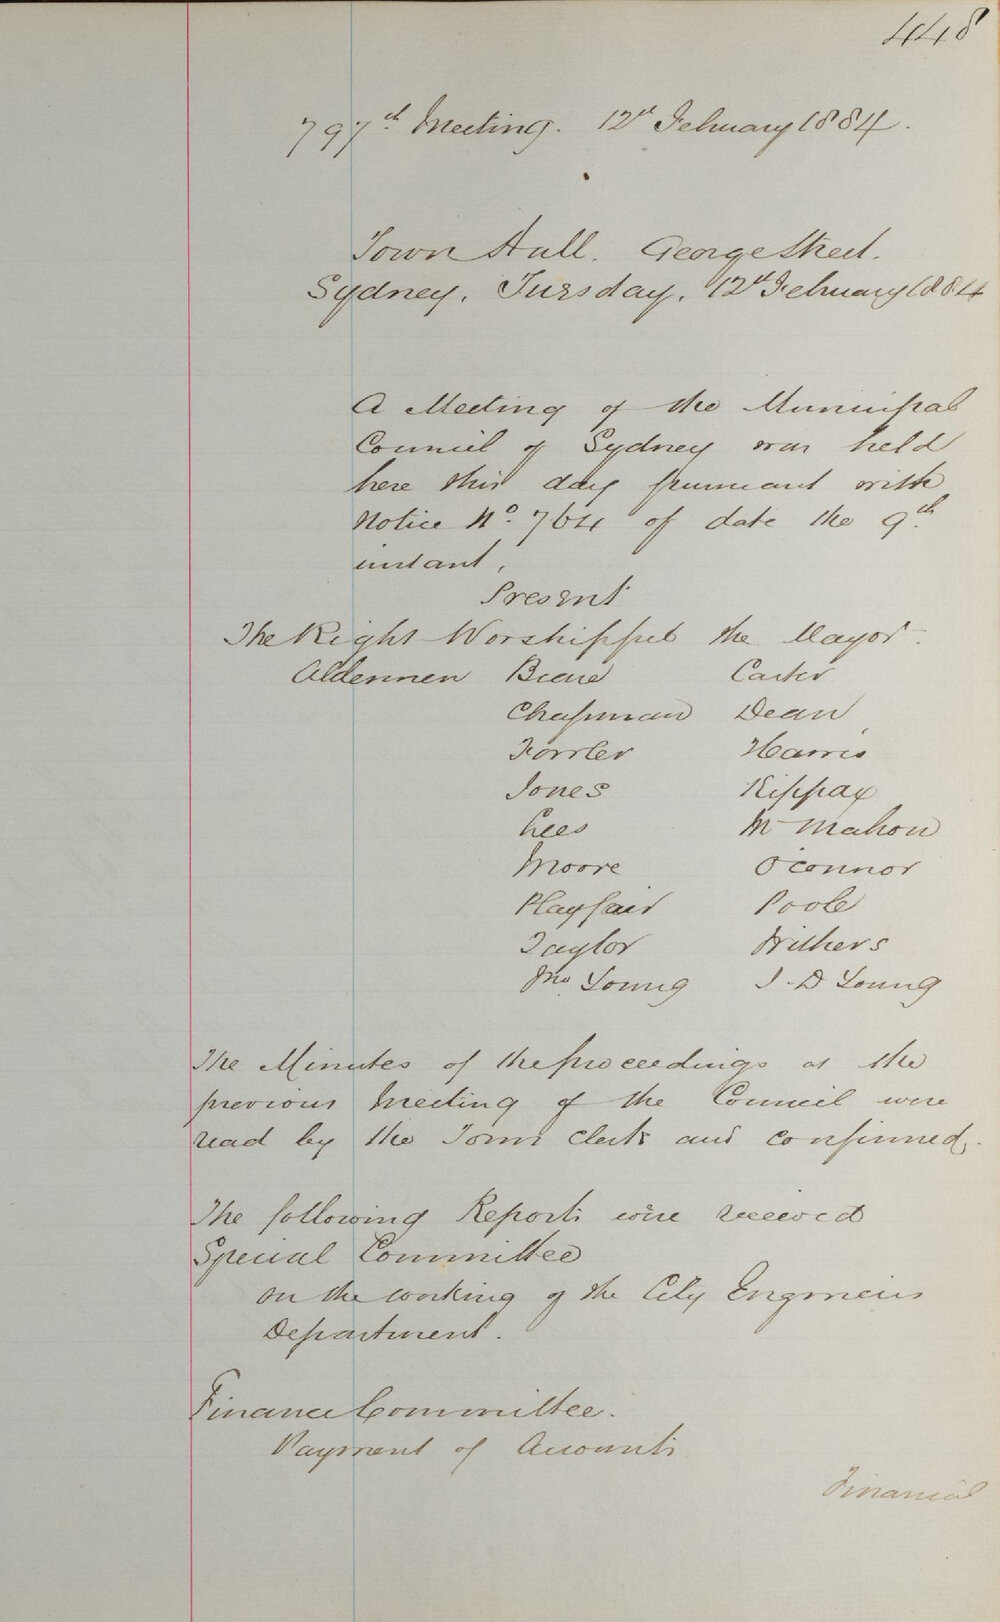 448
797th Meeting. 12th February 1884.
Town Hall. George Street.
Sydney, Tuesday, 12th February 1884
A Meeting of the Municipal
Council of Sydney was held
here this day pursuant with
Notice No. 764 of date the 9th
instant,
Present
The Right Worshipful the Mayor.
Aldermen Beare Carter
Chapman Dean
Fowler Harris
Jones Kippax
Lees Mc Mahon
Moore O'Connor
Playfair Poole
Taylor Withers
Young J. D Young
The Minutes of the proceedings at the
previous Meeting of the Council were
read by the Town Clerk and confirmed.
The following Reports were received
Special Committee
on the working of the City Engineers
Department.
Finance Committee.
Payment of Accounts
Financial